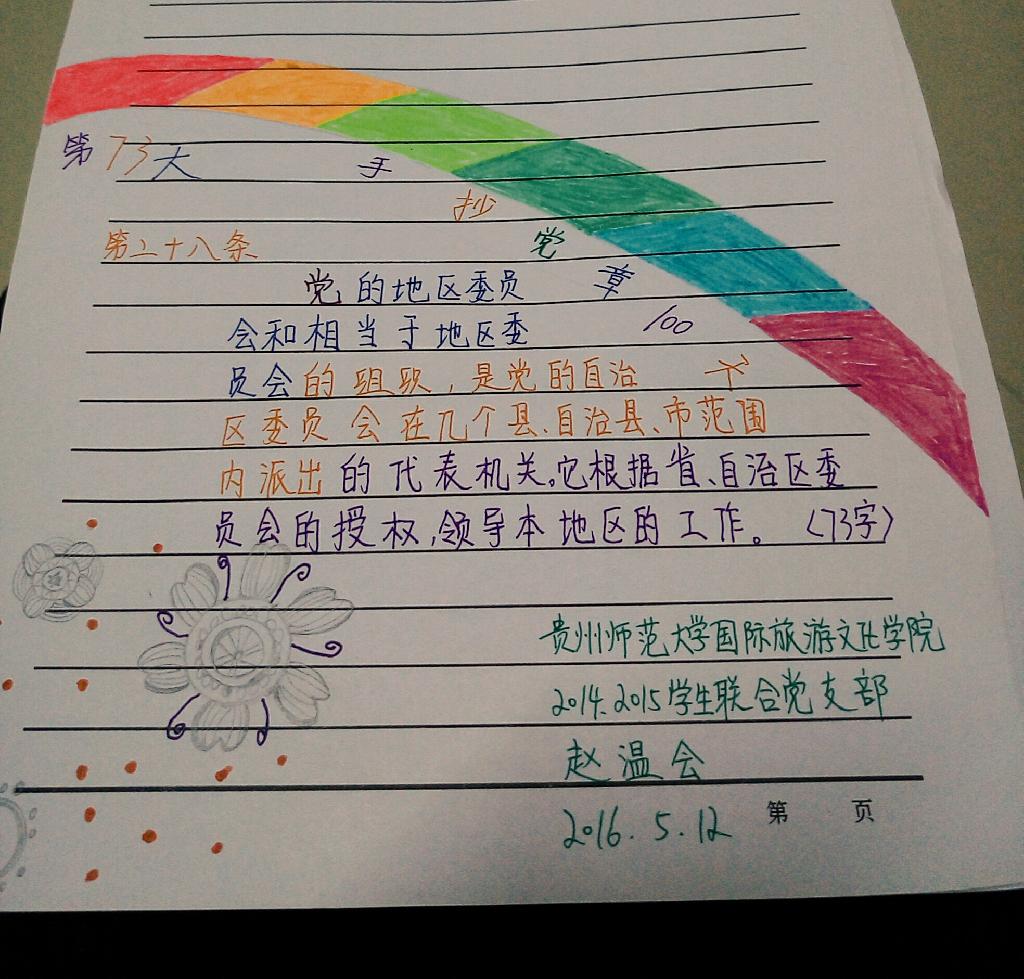 第73天
手抄党章100天
第二十八条
党的地区委员
会和相当于地区委
员会的组织，是党的自治
区委员会在几个县、自治县、市范围
内派出的代表机关。它根据省、自治区委
员会的授权，领导本地区的工作。（73字）
贵州师范大学国际旅游文化学院
2014.2015学生联合党支部
赵温会
2016.5.12
第 页